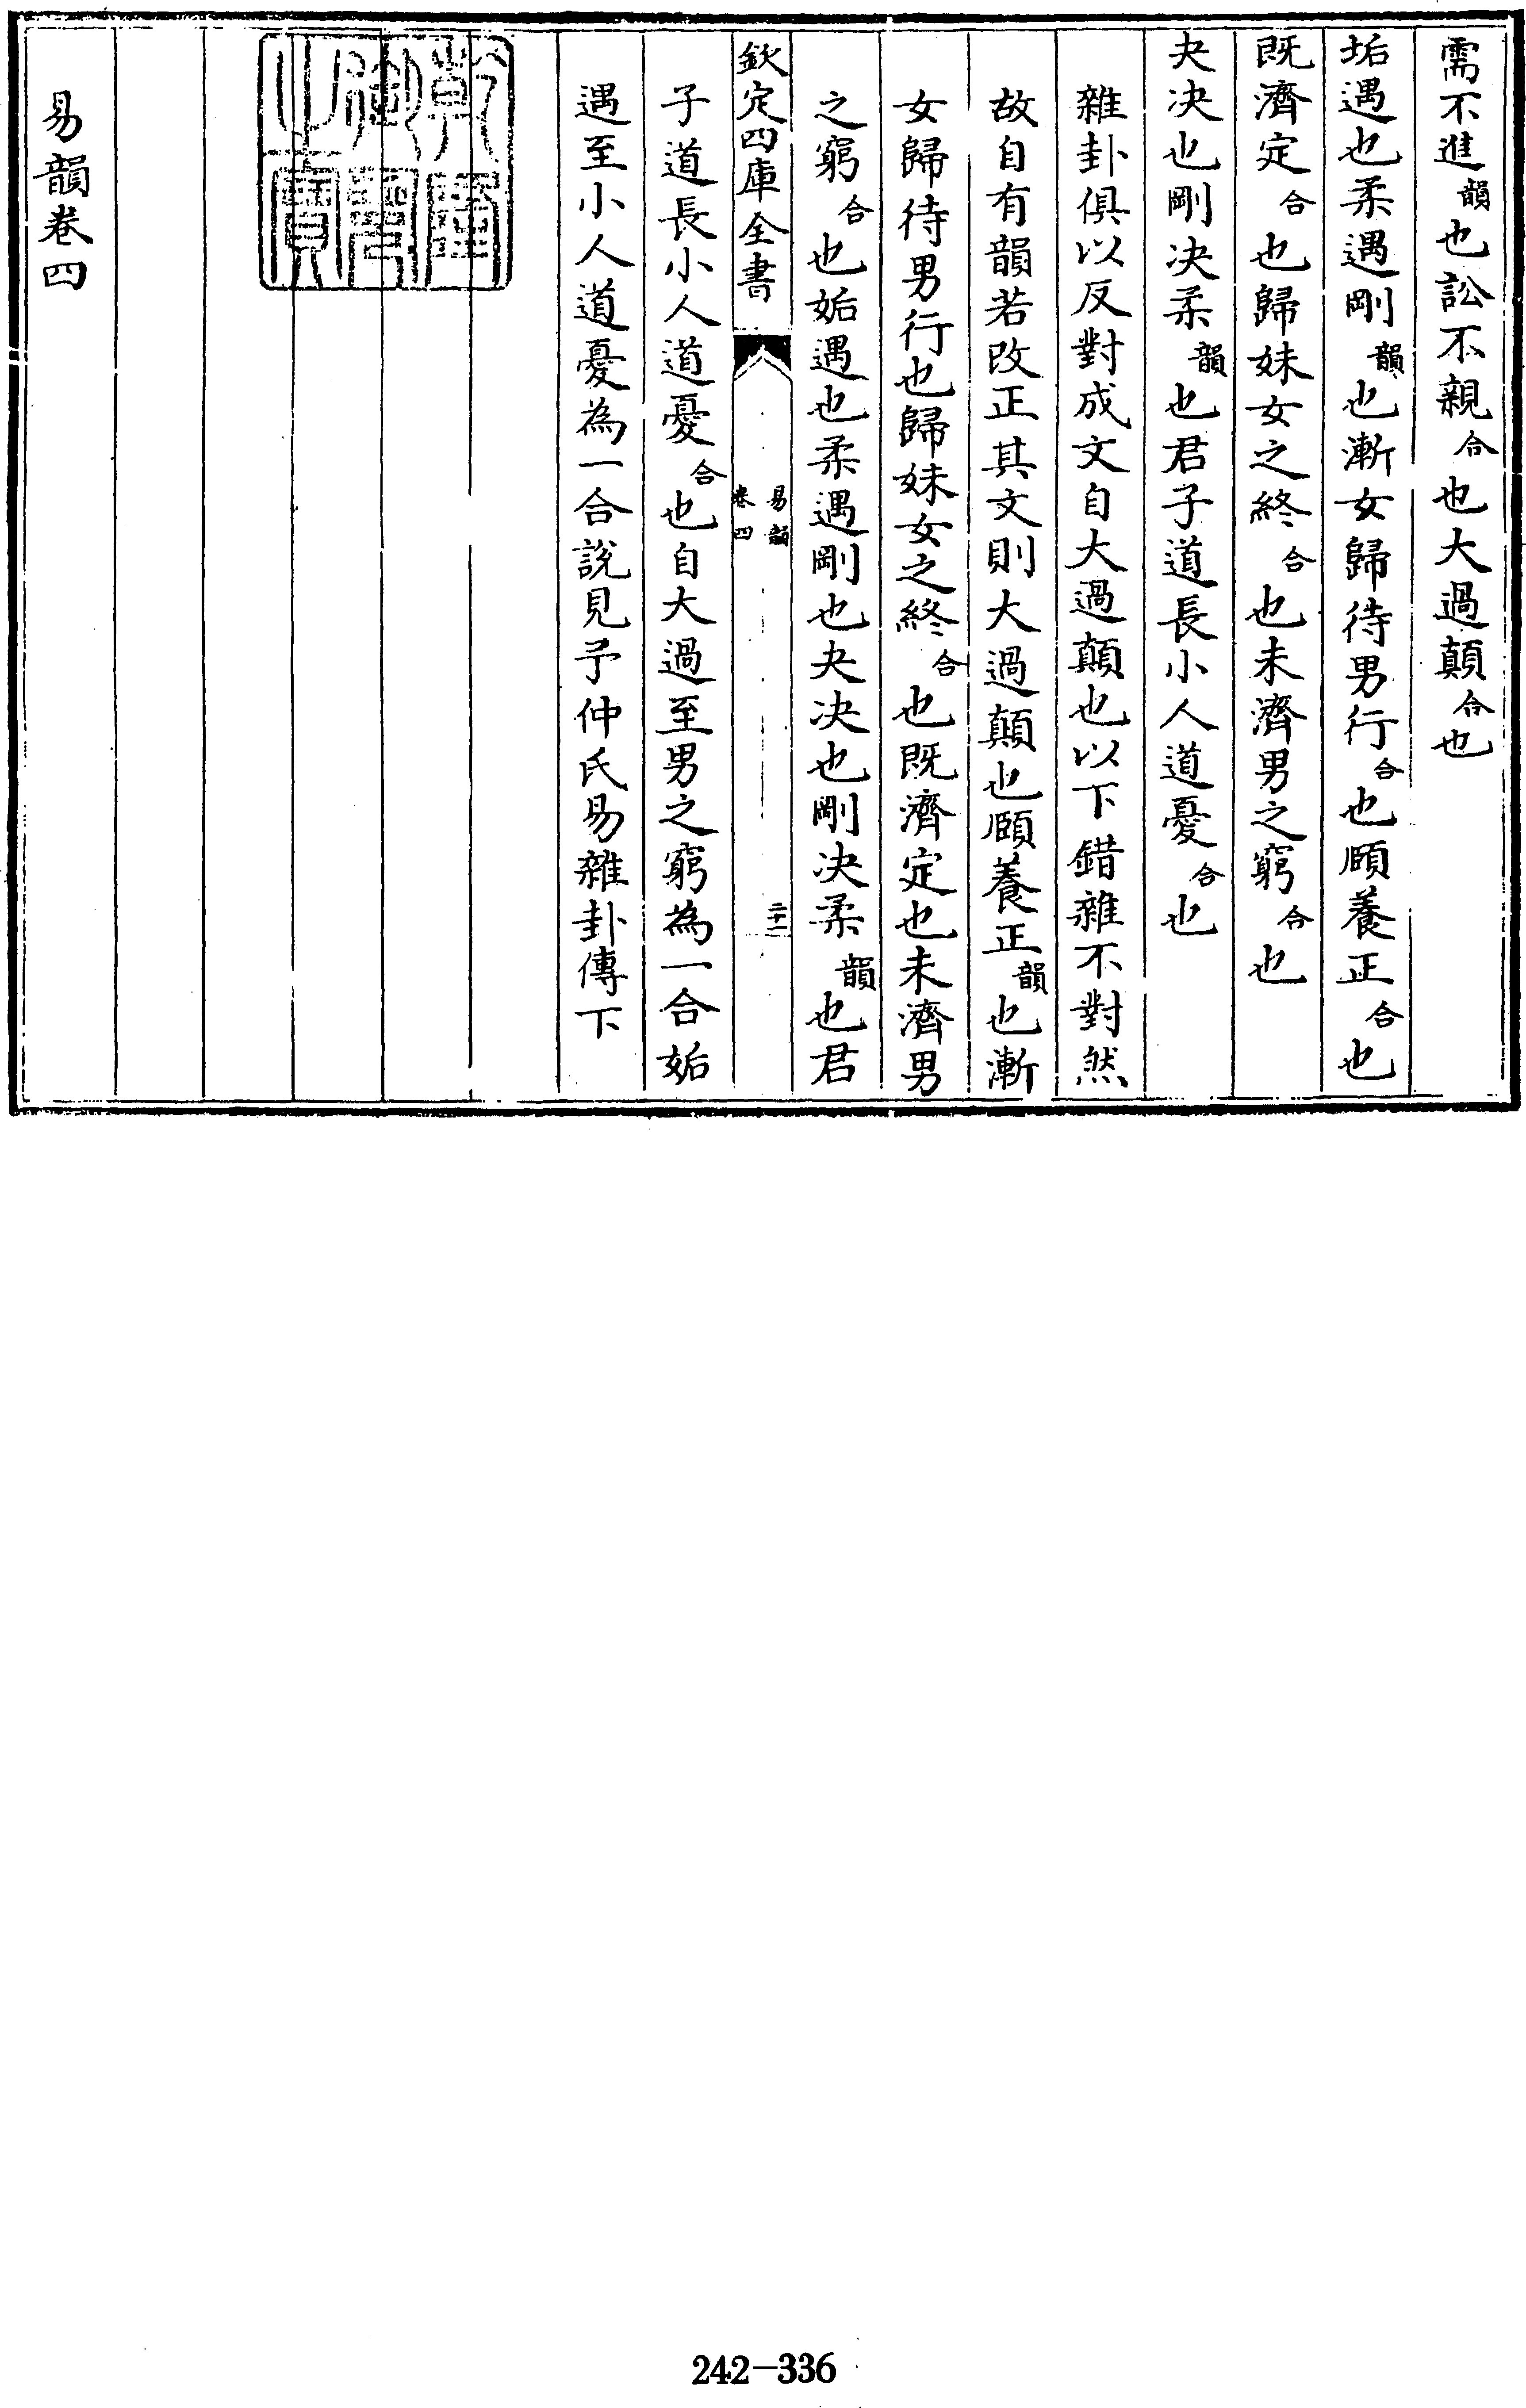 需不進韻也訟不親合也大過顛合也
垢遇也柔遇剛韻也漸女歸待男行合也頤養正合也
既濟定合也歸妹女之終合也未濟男之窮合也
夬決也剛決柔韻也君子道長小人道憂合也
雜卦俱以反對成文自大過顛也以下錯雜不對然
故自有韻若改正其文則大過顛也頤養正韻也漸
女歸待男行也歸妹女之終合也既濟定也未濟男
之窮合也姤遇也柔遇剛也夬決也剛決柔韻也君
欽定四庫全書
易韻
卷四
二十一
子道長小人道憂合也自大過至男之窮為一合姤
遇至小人道憂為一合說見予仲氏易雜卦傳下
乾隆御覽之寶
易韻卷四
242-336